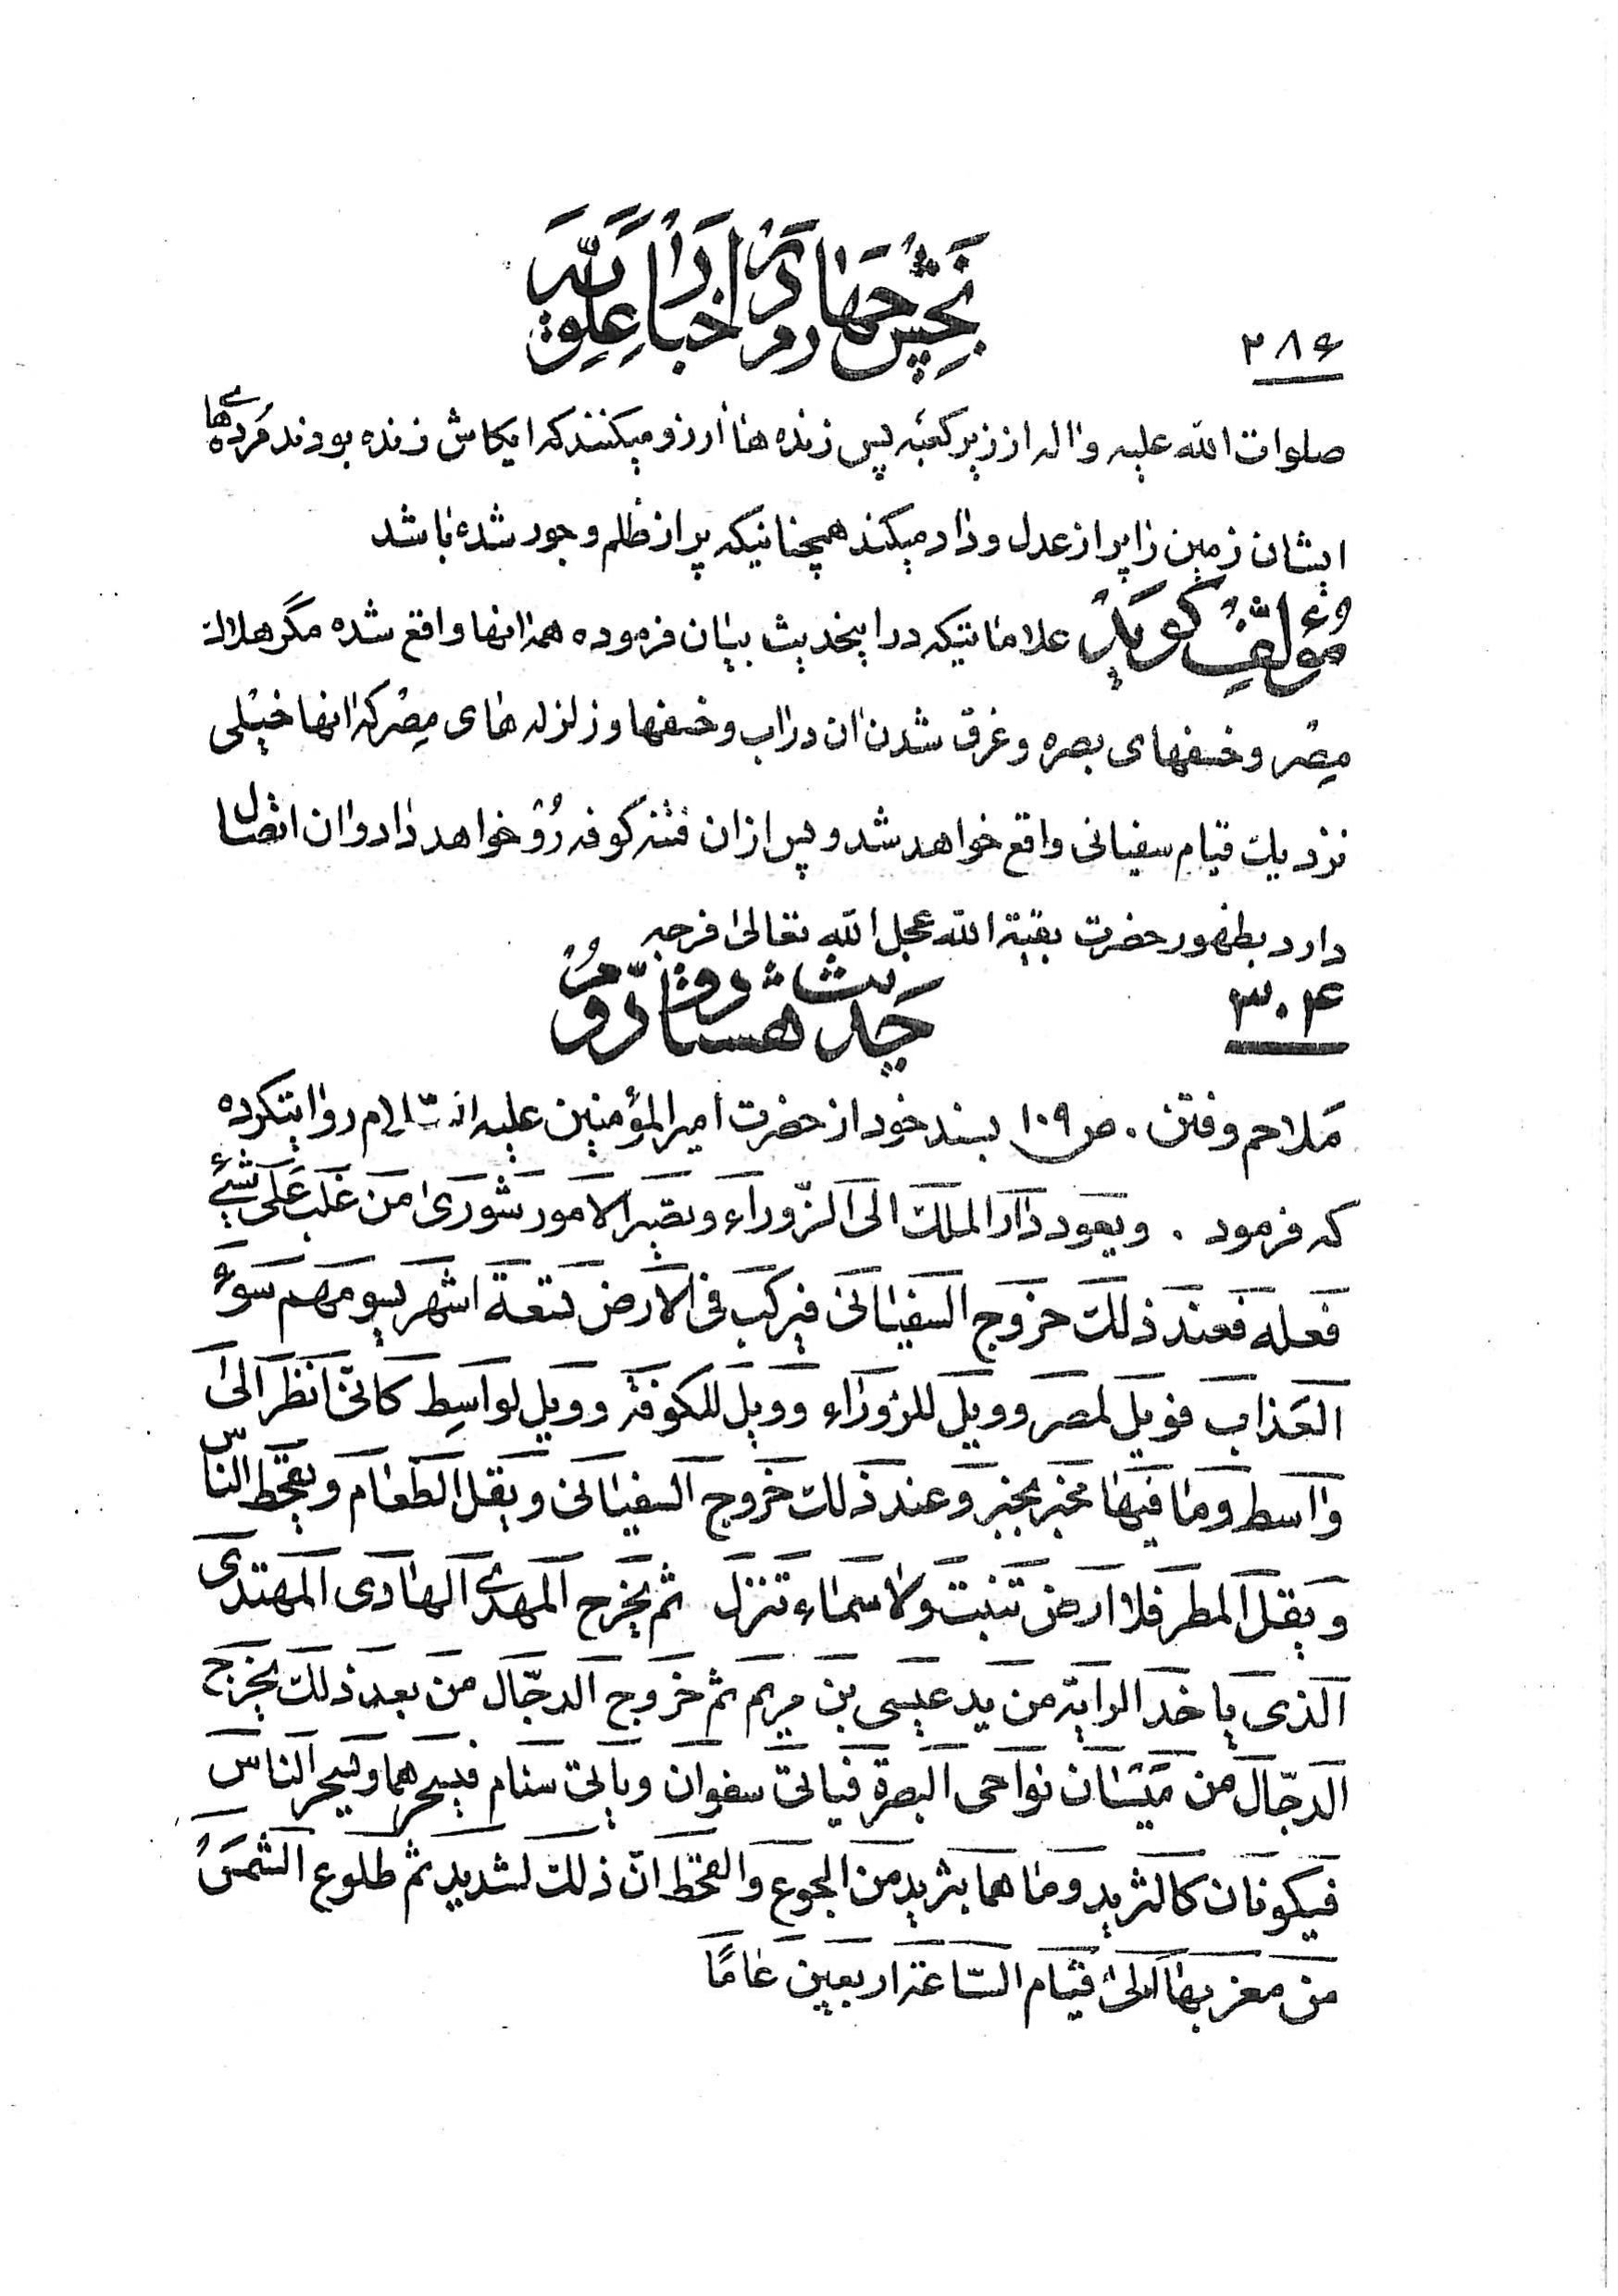 بخش چهارم در اخبار علویّه
۲۸۶
صلوات الله علیه واله از زیر کعبه پس زنده ها ارزو میکنند که ایکاش زنده بودند مُرده‌های
ایشان زمین را پر از عدل و داد میکند همچنانیکه پر از ظلم و جور شده باشد
مؤلّف گوید علاماتیکه در اینحدیث بیان فرموده همه انها واقع شده مگر هلاکت
مِصْر و خسفهای بصره و غرق شدن ان در اب و خسفها و زلزله های مِصْر که انها خیلی
نزدیک قیام سفیانی واقع خواهد شد و پس از ان فتنه کوفه رُو خواهد داد و ان اتصال
دارد بظهور حضرت بقیة الله عجل الله تعالی فرجه
۳۰۴
حدیث هشتاد و دوّم
مَلاحم و فتن . ص ۱۰۹ بسند خود از حضرت امیر المؤمنین علیه السّلام روایتکرده
که فرمود . ویعود دار الملک الی الزّوراء وتصیر الامور شوری من غلب علی شیٔ
فعله فعند ذلک خروج السفیانی فیرکب فی الارض تسعة اشهر یسومهم سوء
العَذاب فویل لمصر وویل للزوراء وویل للکوفة وویل لواسِط کانّی انظر الی
واسط وما فیها مخبر یخبر وعند ذلک خروج السفیانی ویقل الطعام ویقحط النّاس
ویقل المطر فلا ارض تنبت ولا سماء تنزل ثم یخرج المهدی الهادی المهتدی
الذی یاخذ الرایة من ید عیسی بن مریم ثم خروج الدجّال من بعد ذلک یخرج
الدجّال من میسان نواحی البصرة فیاتی سفوان ویاتی سنام فیسحرهما ویسحر الناس
فیکونان کالثرید وما هما بثرید من الجوع والقحط انّ ذلک لشدید ثم طلوع الشمسُ
من مغربها الیٰ قیام السّاعة اربعین عامًا